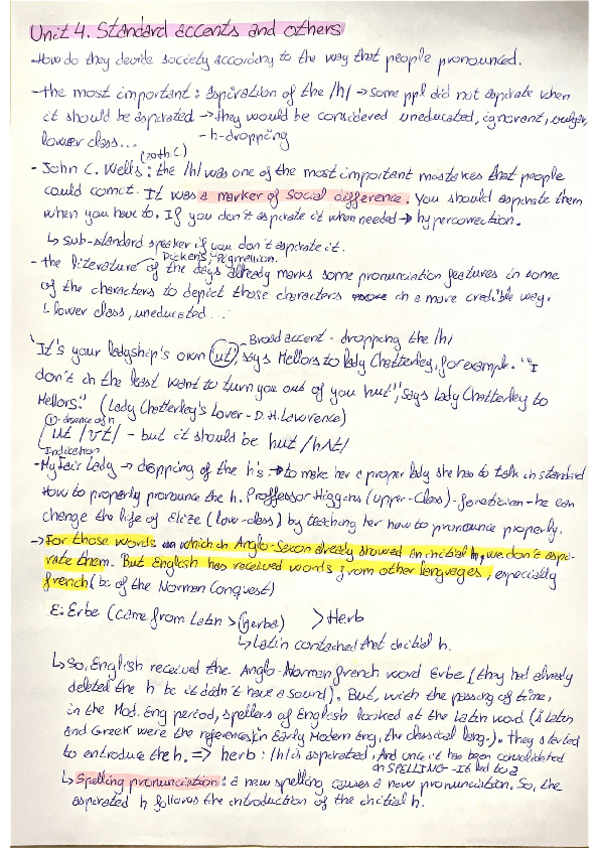 Unit 4. Standard accents and others
-How do they devide society according to the way that people pronounced.
-the most important: aspiration of the /h/ → some ppl did not aspirate when
it should be aspirated → they would be considered uneducated, ignorant, vulgar,
lower class... - h-dropping
(20th C.)
- John C. Wells: the /h/ was one of the most important mistakes that people
could comit. It was a marker of social difference. You should aspirate them
when you have to. If you don't aspirate it when needed → hypercorrection.
↳ sub-standard speaker if you don't aspirate it.
Dickens, Pigmellion.
- the literature of the days already marks some pronunciation features in some
of the characters to depict those characters in a more credible way.
↳ lower class, uneducated...
Broad accent - dropping the /h/
"It's your ladyship's own (ut), says Mellors to lady Chatterley, for example. "I
don't in the least want to turn you out of you hut", says Lady Chatterley to
Mellors." (Lady Chatterley's Lover - D.H. Lawrence)
absence of h
ut /ʊt/ - but it should be hut /hʌt/
Indication
-My Fair Lady → dropping of the h's → to make her a proper lady she has to talk in standard
How to properly pronounce the h. Proffessor Higgins (upper-class) - fonetician - he can
change the life of Elize (low-class) by teaching her how to pronounce properly.
→ For those words in which Anglo-Saxon already showed an initial h, we don't aspi-
rate them. But English has received words from other languages, especially
french (bc of the Norman Conquest)
E: Erbe (came from Latin > (herba) > Herb
↳ Latin contached that initial h.
↳ So, English received the Anglo-Norman french word Erbe (they had already
deleted the h bc it didn't have a sound). But, with the passing of time,
in the Mod. Eng period, spellers of English looked at the Latin word (Latin
and Greek were the references in Early Modern Eng, the classical lang.). They started
to entroduce the h. => herb: /h/ is aspirated. And once it has been consolidated
in SPELLING - It led to a
↳ Spelling pronunciation: a new spelling causes a new pronunciation. So, the
aspirated h follows the introduction of the initial h.